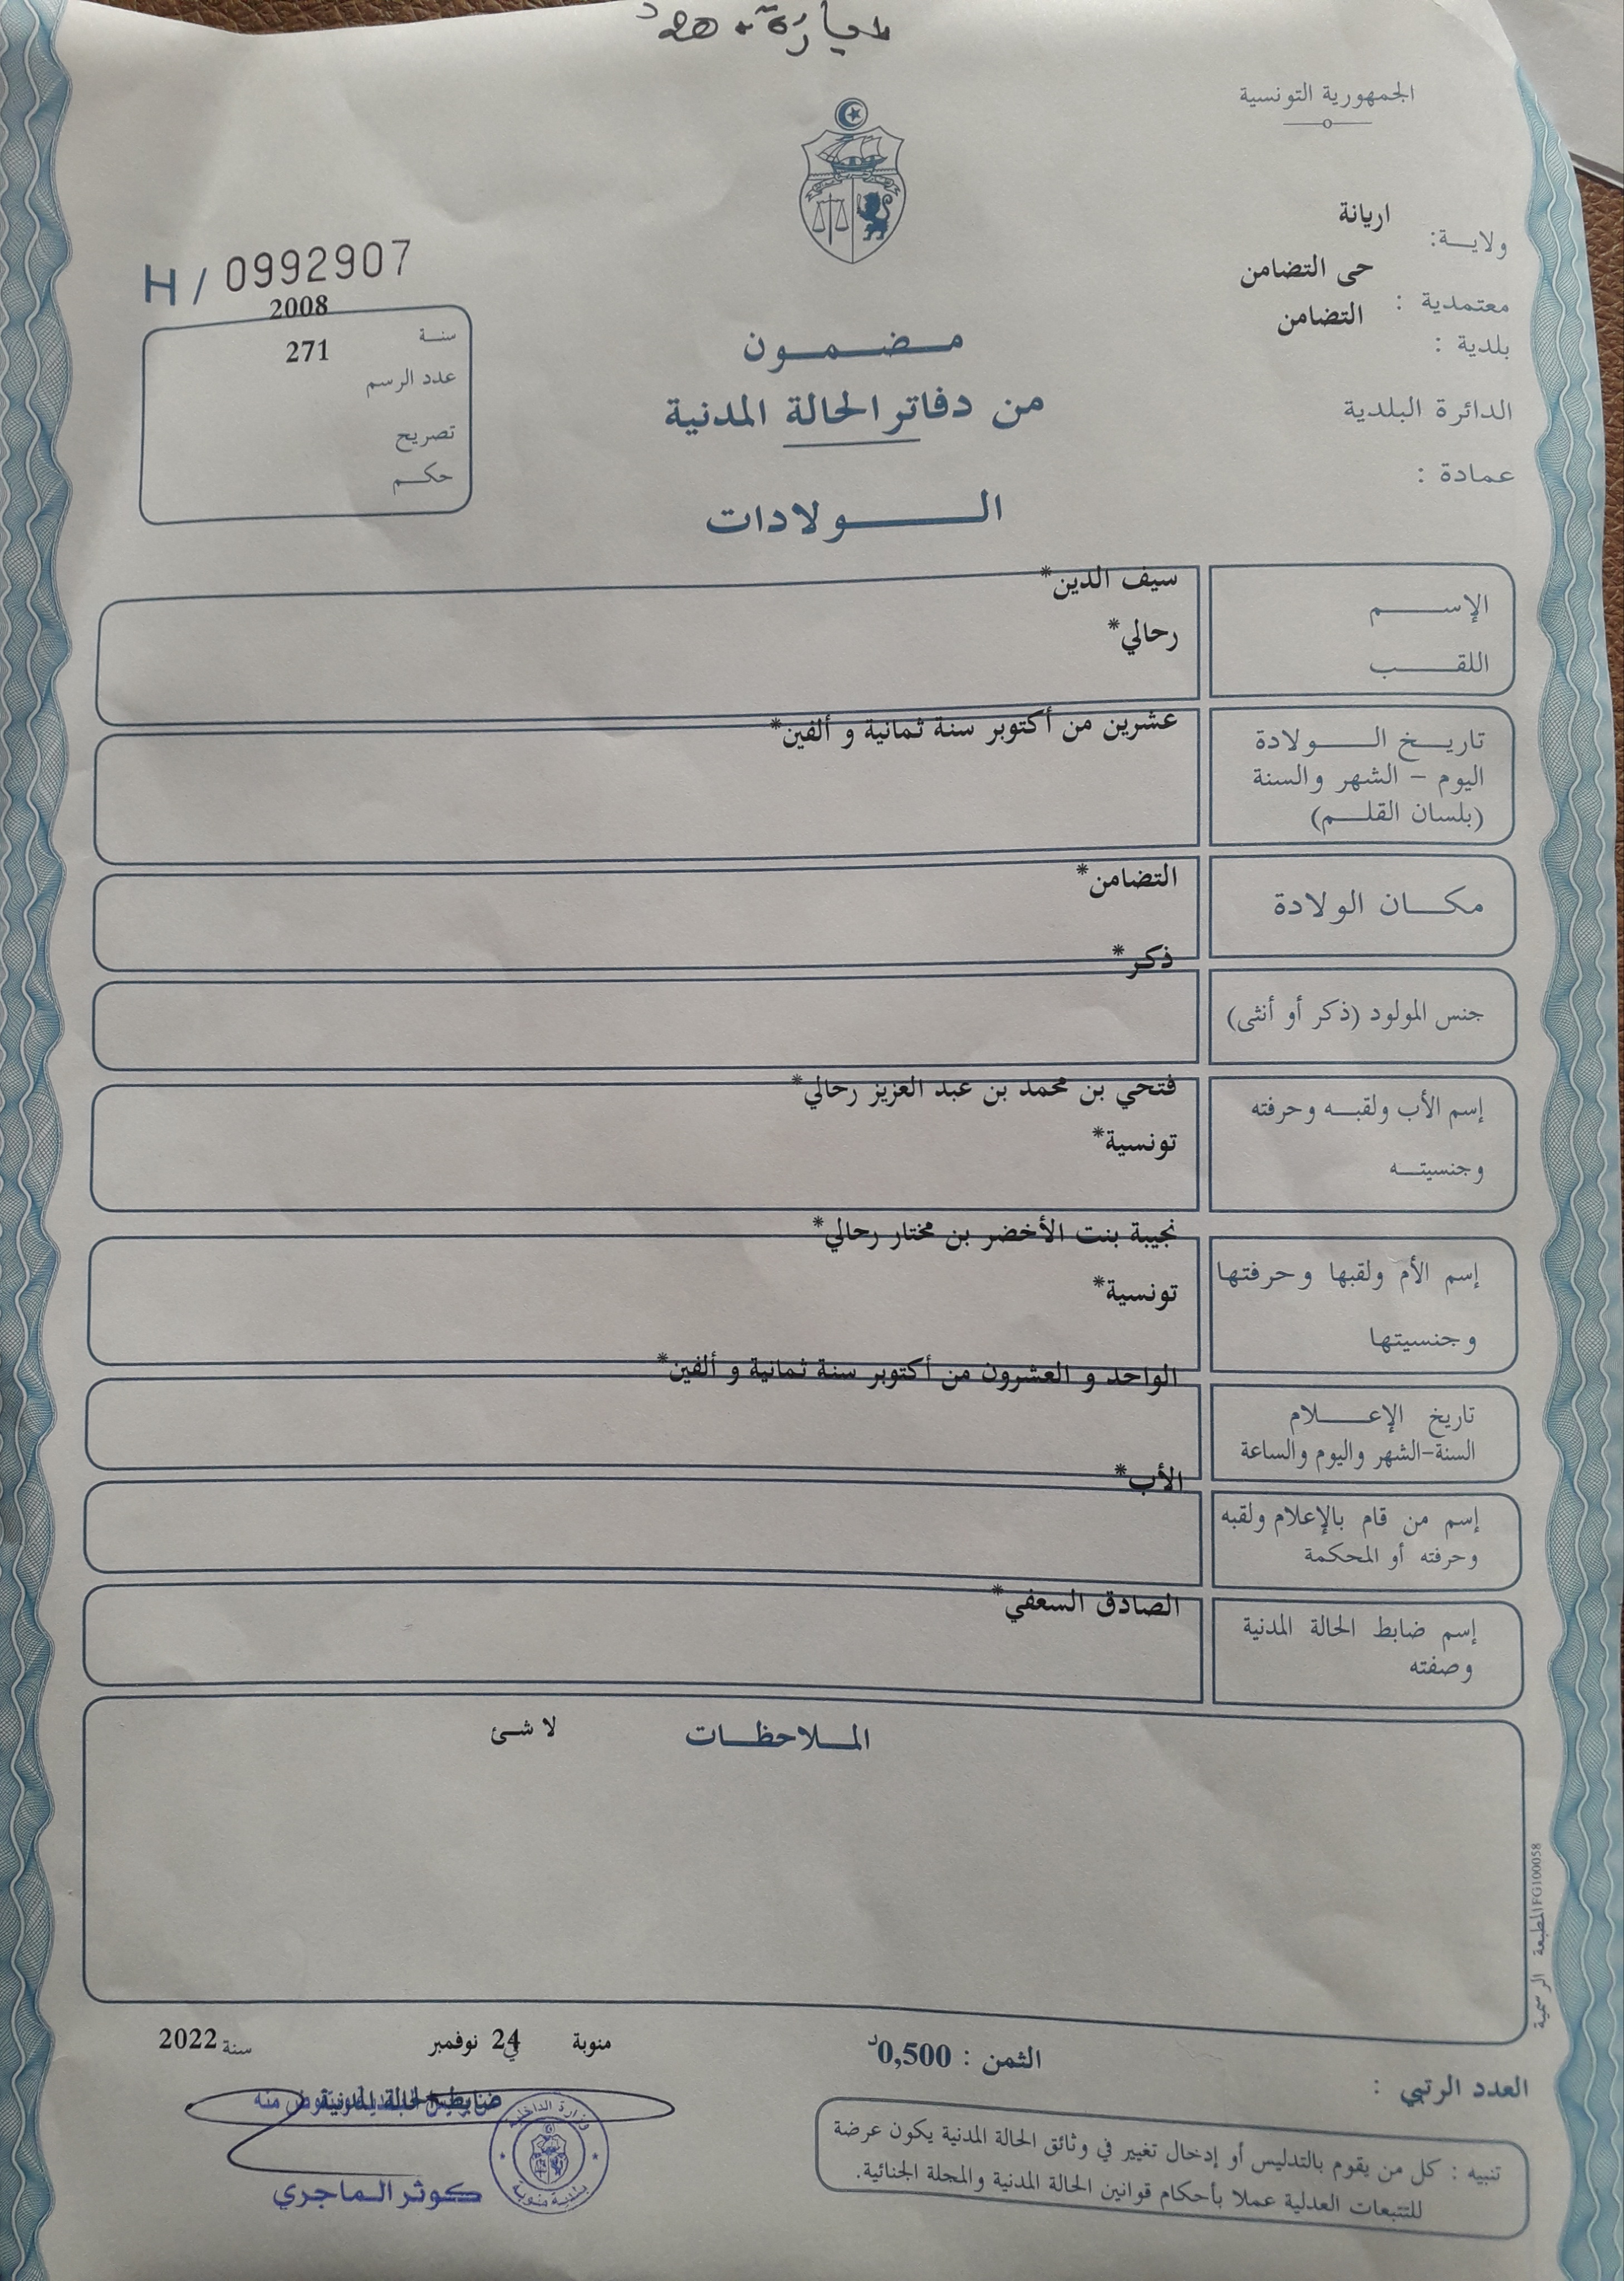 طيارة + 20د
الجمهورية التونسية
ولاية: اريانة
معتمدية : حى التضامن
بلدية : التضامن
الدائرة البلدية
عمادة :
H/ 0992907
سنة 2008
عدد الرسم 271
تصريح
حكم
مضمون
من دفاتر الحالة المدنية
الولادات
الإسم سيف الدين*
اللقب رحالي*
تاريخ الولادة عشرين من أكتوبر سنة ثمانية و ألفين*
اليوم - الشهر والسنة
(بلسان القلم)
مكان الولادة التضامن*
جنس المولود (ذكر أو أنثى) ذكر*
إسم الأب ولقبه وحرفته فتحي بن محمد بن عبد العزيز رحالي*
وجنسيته تونسية*
إسم الأم ولقبها وحرفتها نجيبة بنت الأخضر بن مختار رحالي*
وجنسيتها تونسية*
تاريخ الإعلام الواحد و العشرون من أكتوبر سنة ثمانية و ألفين*
السنة-الشهر واليوم والساعة
إسم من قام بالإعلام ولقبه الأب*
وحرفته أو المحكمة
إسم ضابط الحالة المدنية الصادق السعفي*
وصفته
الملاحظات لا شئ
المطبعة الرسمية FG100058
الثمن : 0,500د
منوبة في 24 نوفمبر سنة 2022
العدد الرتبي :
تنبيه : كل من يقوم بالتدليس أو إدخال تغيير في وثائق الحالة المدنية يكون عرضة
للتتبعات العدلية عملا بأحكام قوانين الحالة المدنية والمجلة الجنائية.
ضابط الحالة المدنية
كوثر الماجري
وزارة الداخلية
بلدية منوبة